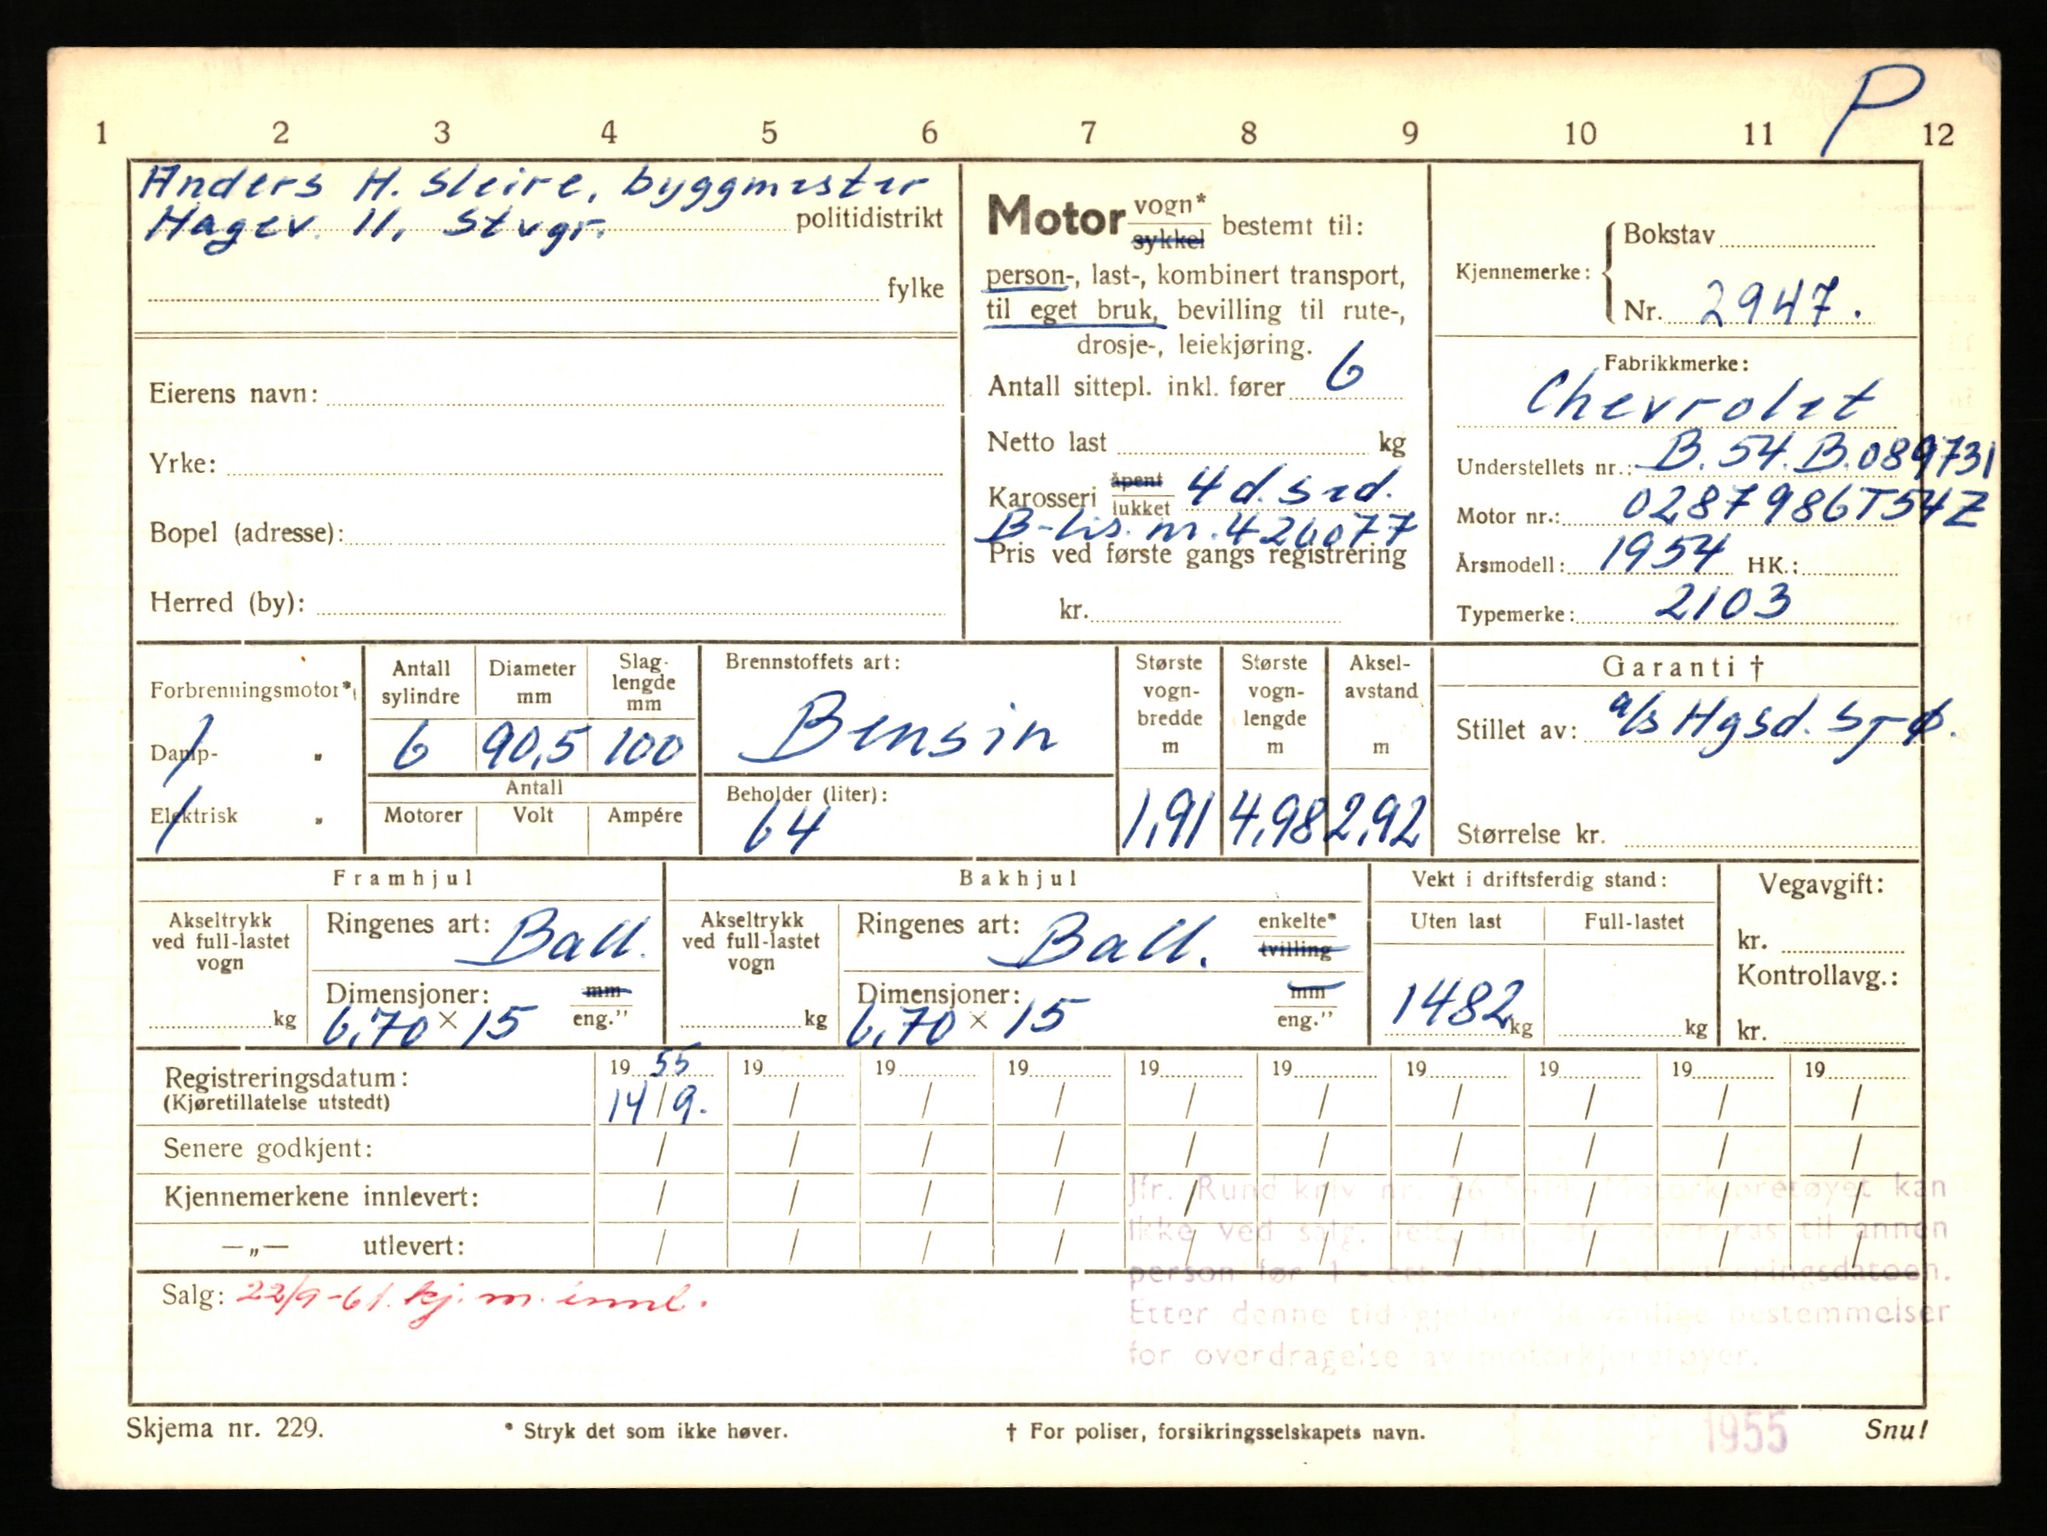 P
1 2 3 4 5 6 7 8 9 10 11 12
Anders H. Sleire, byggmester
Hagev. 11, Stvgr. politidistrikt
fylke
Eierens navn:
Yrke:
Bopel (adresse):
Herred (by):
Motor vogn* sykkel bestemt til:
person-, last-, kombinert transport,
til eget bruk, bevilling til rute-,
drosje-, leiekjøring.
Antall sittepl. inkl. fører 6
Netto last kg
Karosseri åpent lukket 4 d. sed.
B-lis. nr. 420077
Pris ved første gangs registrering
kr.
Kjennemerke: Bokstav
Nr. 2947.
Fabrikkmerke:
Chevrolet
Understellets nr.: B.54.B.089731
Motor nr.: 0287986T54Z
Årsmodell: 1954 HK.:
Typemerke: 2103
Forbrenningsmotor*
Damp- "
Elektrisk "
Antall sylindre 6
Diameter mm 90,5
Slag-lengde mm 100
Antall
Motorer Volt Ampére
Brennstoffets art:
Bensin
Beholder (liter):
64
Største vogn-bredde m 1,91
Største vogn-lengde m 4,98
Aksel-avstand m 2,92
Garanti †
Stillet av: a/s Hgsd. Sjø.
Størrelse kr.
Framhjul
Akseltrykk ved full-lastet vogn kg
Ringenes art: Ball.
Dimensjoner: mm
6,70 × 15 eng."
Bakhjul
Akseltrykk ved full-lastet vogn kg
Ringenes art: Ball. enkelte* tvilling
Dimensjoner: mm
6,70 × 15 eng."
Vekt i driftsferdig stand:
Uten last Full-lastet
1482 kg kg
Vegavgift:
kr.
Kontrollavg.:
kr.
Registreringsdatum: 19 55 19 19 19 19 19 19 19 19 19
(Kjøretillatelse utstedt) 14/9. / / / / / / / / /
Senere godkjent: / / / / / / / / / /
Kjennemerkene innlevert: / / / / / / / / / /
—„— utlevert: / / / / / / / / / /
Jfr. Rundskriv nr. 26 Motorkjøretøyet kan
ikke ved salg, til annen
person før 1 registreringsdatoen.
Etter denne tid gjelder de vanlige bestemmelser
for overdragelse av motorkjøretøyer.
Salg: 22/9-61. kj. m. innl.
1955
Skjema nr. 229. * Stryk det som ikke høver. † For poliser, forsikringsselskapets navn. Snu!